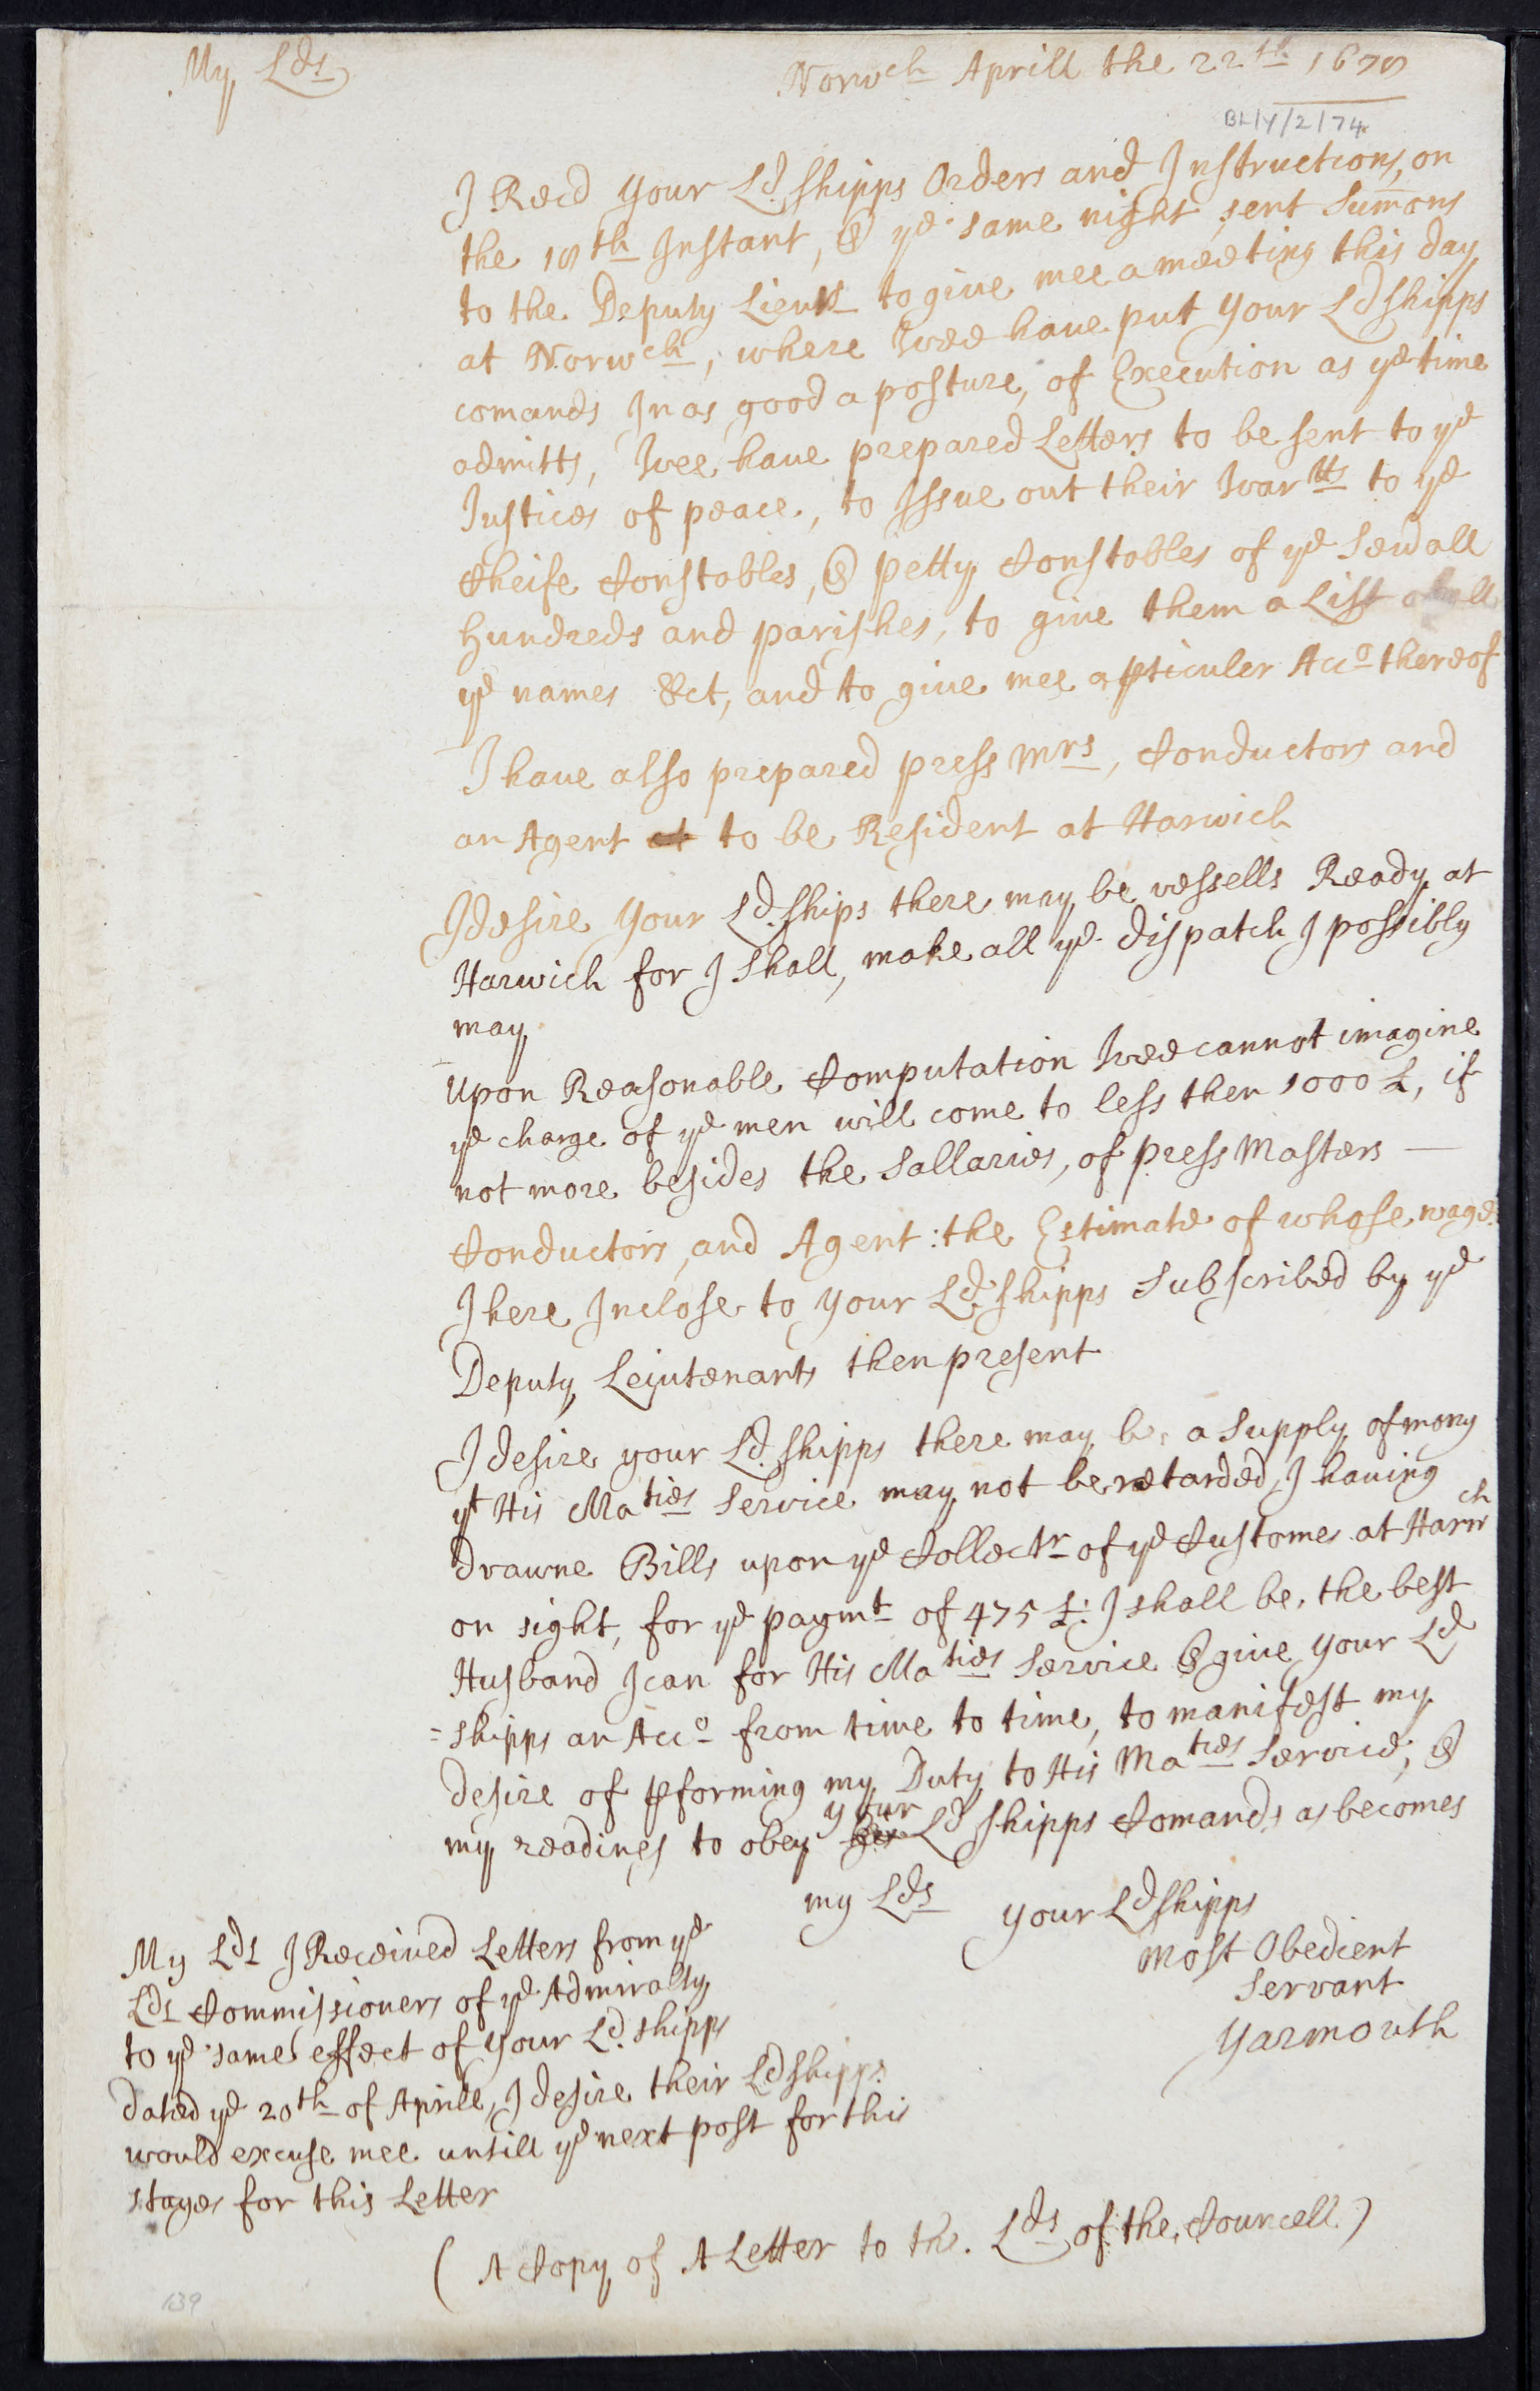 My Lds
Norwch Aprill the 22th 1678
BL/Y/2/74
I Recd your Ld shipps Orders and Instructions, on
the 18th Instant, & ye same night sent Sumons
to the Deputy Lieuts to give mee a meeting this day
at Norwch, where wee have put your Ldshipps
comands In as good a posture, of Execution as ye time
admitts, wee have prepared Letters to be sent to ye
Justices of peace, to Issue out their warrts to ye
Cheife Constables, & petty Constables of ye Sevrall
Hundreds and parishes, to give them a List of all
ye names &ct, and to give mee a pticuler Acco thereof
I have also prepared press Mrs, Conductors and
an Agent at to be Resident at Harwich
I desire your Ld ships there may be vessells Ready at
Harwich for I shall, make all ye dispatch I possibly
may
Upon Reasonable Computation wee cannot imagine
ye charge of ye men will come to less then 1000 £, if
not more besides the Sallaries, of press Masters —
Conductors, and Agent: the Estimate of whose wages
I here Inclose to your Ld shipps Subscribed by ye
Deputy Leiutenants then present
I desire your Ld shipps there may be a Supply of mony
yt His Maties Service may not be retarded, I having
drawne Bills upon ye Collectr of ye Customes at Harwch
on sight, for ye paymt of 475 £: I shall be, the best
Husband I can for His Maties Service & give your Ld
=shipps an Acco from time to time, to manifest my
desire of pforming my Duty to His Maties Service; &
my readines to obey your Ld shipps Comands as becomes
my Lds
your Ldshipps
Most Obedient
Servant
Yarmouth
My Lds I Received Letters from ye
Lds Commissioners of ye Admiralty
to ye same effect of your Ld shipps
dated ye 20th of Aprill, I desire their Ldshipps
would excuse mee untill ye next post for this
stayes for this Letter
( A Copy of A Letter to the Lds of the Councell )
139